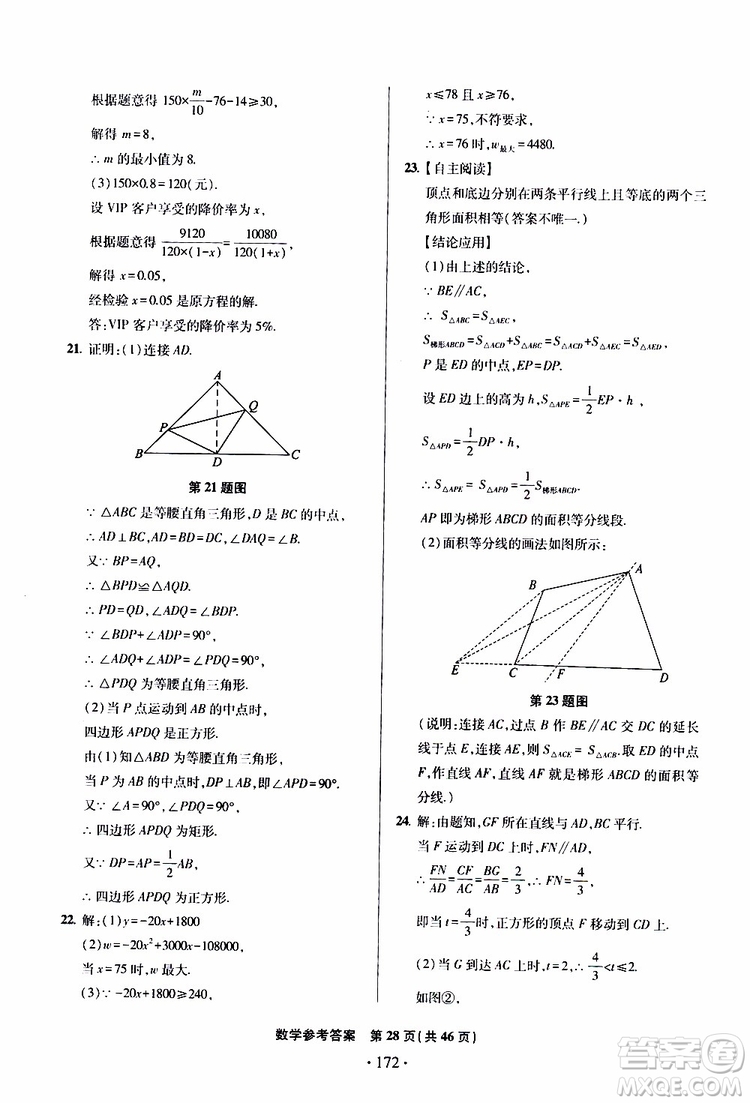 根据题意得 150×m/10-76-14≥30,
解得 m=8,
∴ m 的最小值为 8.
(3)150×0.8=120(元).
设 VIP 客户享受的降价率为 x,
根据题意得 9120/120×(1-x)=10080/120(1-x),
解得 x=0.05,
经检验 x=0.05 是原方程的解.
答:VIP 客户享受的降价率为 5%.
21. 证明:(1)连接 AD.
A
P
Q
B
D
C
第 21 题图
∵ △ABC 是等腰直角三角形,D 是 BC 的中点,
∴ AD⊥BC,AD=BD=DC,∠DAQ=∠B.
又∵ BP=AQ,
∴ △BPD≌△AQD.
∴ PD=QD,∠ADQ=∠BDP.
∵ ∠BDP+∠ADP=90°,
∴ ∠ADP+∠ADQ=90°,
∴ △PDQ 为等腰直角三角形.
(2)当 P 点运动到 AB 的中点时,
四边形 APDQ 是正方形.
由(1)知△ABD 为等腰直角三角形,
当 P 为 AB 的中点时,DP⊥AB,即∠APD=90°,
又∵ ∠A=90°,∠PDQ=90°,
∴ 四边形 APDQ 为矩形.
又∵ DP=AP=1/2AB,
∴ 四边形 APDQ 为正方形.
22. 解:(1)y=-20x+1800
(2)w=-20x²+3000x-108000,
当 x=75 时,w 最大.
(3)∵ -20x+1800≥240,
x≤78 且 x≥76,
∵ x=75,不符要求,
∴ x=76 时,w最大=4480.
23.【自主阅读】
顶点和底边分别在两条平行线上且等底的两个三
角形面积相等(答案不唯一.)
【结论应用】
(1)由上述的结论,
∵ BE∥AC,
∴ S△ABC=S△AEC,
S梯形ABCD=S△ACD+S△ABC=S△ACD+S△AEC=S△AED,
P 是 ED 的中点,EP=DP.
设 ED 边上的高为 h,S△APE=1/2EP·h,
S△APD=1/2DP·h,
∴ S△APE=S△APD=1/2S梯形ABCD.
AP 即为梯形 ABCD 的面积等分线段.
(2)面积等分线的画法如图所示:
B
A
E
C
F
D
第 23 题图
(说明:连接 AC,过点 B 作 BE∥AC 交 DC 的延长
线于点 E,连接 AE,则 S△ACE=S△ABE.取 ED 的中点
F,作直线 AF,直线 AF 就是梯形 ABCD 的面积等
分线.)
24. 解:由题知,GF 所在直线与 AD,BC 平行.
当 F 运动到 DC 上时,FN∥AD,
∴ FN/AD=CF/AC=BG/BC=2/3,∴ t=4/3,
即当 t=4/3时,正方形的顶点 F 移动到 CD 上.
(2)当 G 到达 AC 中点时,t=2,∴ 4/3<t≤2.
如图②,
数学参考答案 第 28 页(共 46 页)
·172·
答案圈
MXQE.COM